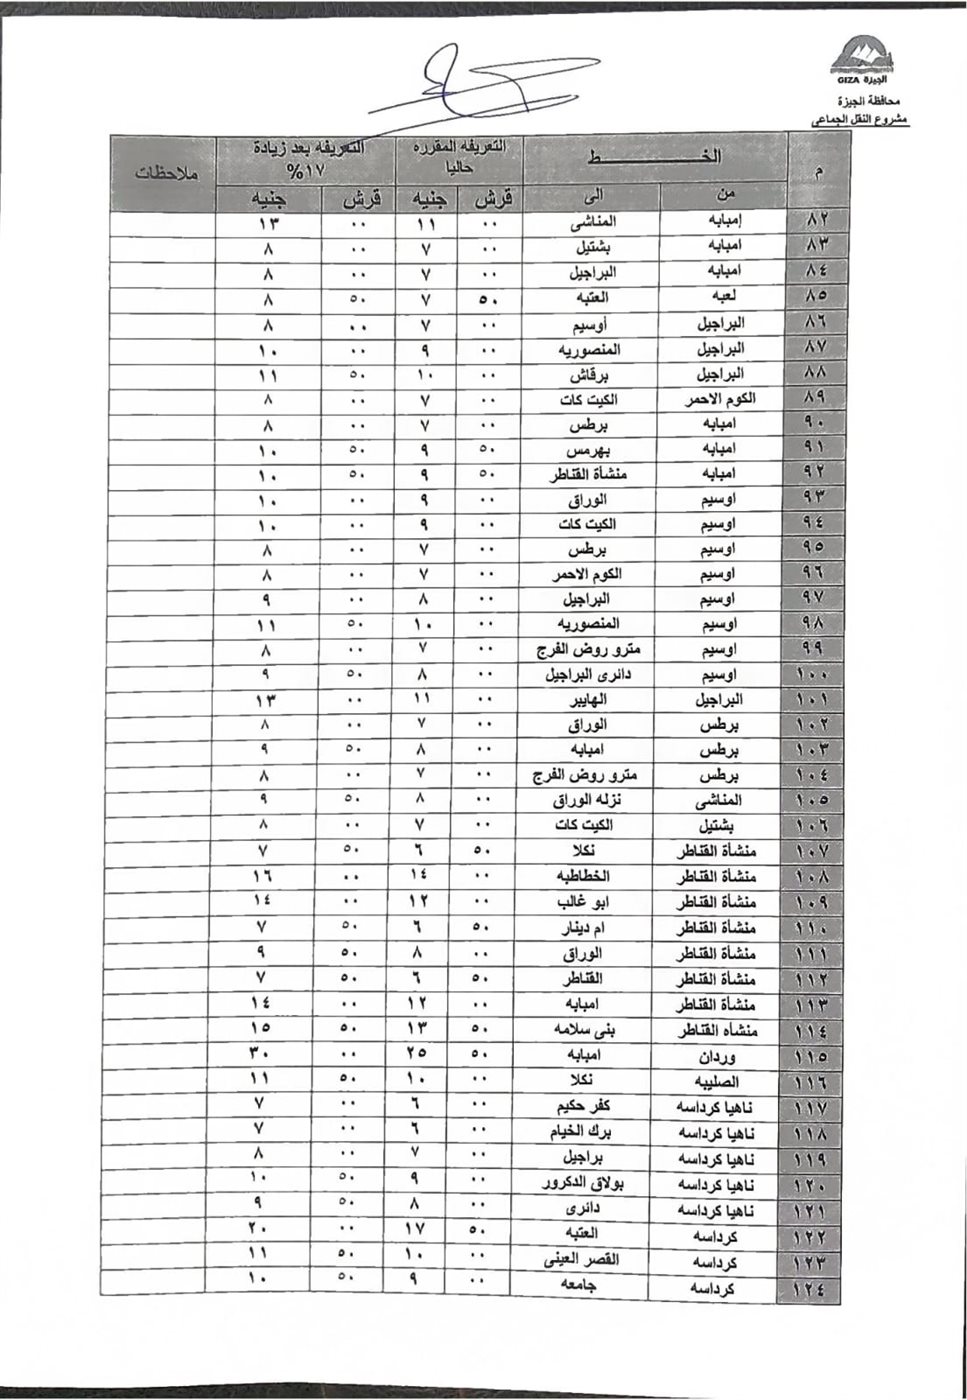 الجيزة GIZA
محافظة الجيزة
مشروع النقل الجماعى
م الخــــــــــط التعريفه المقرره حاليا التعريفه بعد زيادة ١٧% ملاحظات
من الى قرش جنيه قرش جنيه
٨٢ إمبابه المناشى ٠٠ ١١ ٠٠ ١٣
٨٣ امبابه بشتيل ٠٠ ٧ ٠٠ ٨
٨٤ امبابه البراجيل ٠٠ ٧ ٠٠ ٨
٨٥ لعبه العتبه ٥٠ ٧ ٥٠ ٨
٨٦ البراجيل أوسيم ٠٠ ٧ ٠٠ ٨
٨٧ البراجيل المنصوريه ٠٠ ٩ ٠٠ ١٠
٨٨ البراجيل برقاش ٠٠ ١٠ ٥٠ ١١
٨٩ الكوم الاحمر الكيت كات ٠٠ ٧ ٠٠ ٨
٩٠ امبابه برطس ٠٠ ٧ ٠٠ ٨
٩١ امبابه بهرمس ٥٠ ٩ ٥٠ ١٠
٩٢ امبابه منشأة القناطر ٥٠ ٩ ٥٠ ١٠
٩٣ اوسيم الوراق ٠٠ ٩ ٠٠ ١٠
٩٤ اوسيم الكيت كات ٠٠ ٩ ٠٠ ١٠
٩٥ اوسيم برطس ٠٠ ٧ ٠٠ ٨
٩٦ اوسيم الكوم الاحمر ٠٠ ٧ ٠٠ ٨
٩٧ اوسيم البراجيل ٠٠ ٨ ٠٠ ٩
٩٨ اوسيم المنصوريه ٠٠ ١٠ ٥٠ ١١
٩٩ اوسيم مترو روض الفرج ٠٠ ٧ ٠٠ ٨
١٠٠ اوسيم دائرى البراجيل ٠٠ ٨ ٥٠ ٩
١٠١ البراجيل الهايبر ٠٠ ١١ ٠٠ ١٣
١٠٢ برطس الوراق ٠٠ ٧ ٠٠ ٨
١٠٣ برطس امبابه ٠٠ ٨ ٥٠ ٩
١٠٤ برطس مترو روض الفرج ٠٠ ٧ ٠٠ ٨
١٠٥ المناشى نزله الوراق ٠٠ ٨ ٥٠ ٩
١٠٦ بشتيل الكيت كات ٠٠ ٧ ٠٠ ٨
١٠٧ منشأة القناطر نكلا ٥٠ ٦ ٥٠ ٧
١٠٨ منشأة القناطر الخطاطبه ٠٠ ١٤ ٠٠ ١٦
١٠٩ منشأة القناطر ابو غالب ٠٠ ١٢ ٠٠ ١٤
١١٠ منشأة القناطر ام دينار ٥٠ ٦ ٥٠ ٧
١١١ منشأة القناطر الوراق ٠٠ ٨ ٥٠ ٩
١١٢ منشأة القناطر القناطر ٥٠ ٦ ٥٠ ٧
١١٣ منشأة القناطر امبابه ٠٠ ١٢ ٠٠ ١٤
١١٤ منشاه القناطر بنى سلامه ٥٠ ١٣ ٥٠ ١٥
١١٥ وردان امبابه ٥٠ ٢٥ ٠٠ ٣٠
١١٦ الصليبه نكلا ٠٠ ١٠ ٥٠ ١١
١١٧ ناهيا كرداسه كفر حكيم ٠٠ ٦ ٠٠ ٧
١١٨ ناهيا كرداسه برك الخيام ٠٠ ٦ ٠٠ ٧
١١٩ ناهيا كرداسه براجيل ٠٠ ٧ ٠٠ ٨
١٢٠ ناهيا كرداسه بولاق الدكرور ٠٠ ٩ ٥٠ ١٠
١٢١ ناهيا كرداسه دائرى ٠٠ ٨ ٥٠ ٩
١٢٢ كرداسه العتبه ٥٠ ١٧ ٠٠ ٢٠
١٢٣ كرداسه القصر العينى ٠٠ ١٠ ٥٠ ١١
١٢٤ كرداسه جامعه ٠٠ ٩ ٥٠ ١٠